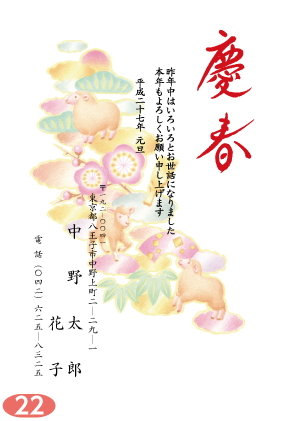 慶春
昨年中はいろいろとお世話になりました
本年もよろしくお願い申し上げます
平成二十七年 元旦
〒一九二─〇〇四一
東京都八王子市中野上町二─二九─一
中野太郎
花子
電話(〇四二)六二五─八三二五
22